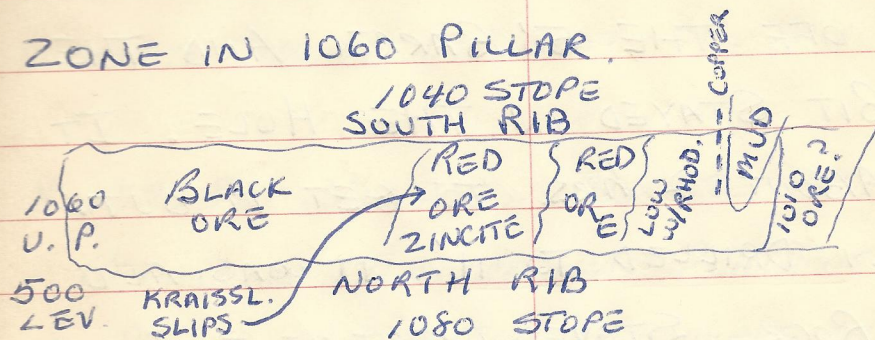 ZONE IN 1060 PILLAR.
1040 STOPE
SOUTH RIB
COPPER
1060
U. P.
BLACK
ORE
RED
ORE
ZINCITE
RED
ORE
LOW
W/RHOD.
MUD
1010
ORE?
500
LEV.
KRAISSL.
SLIPS
NORTH RIB
1080 STOPE